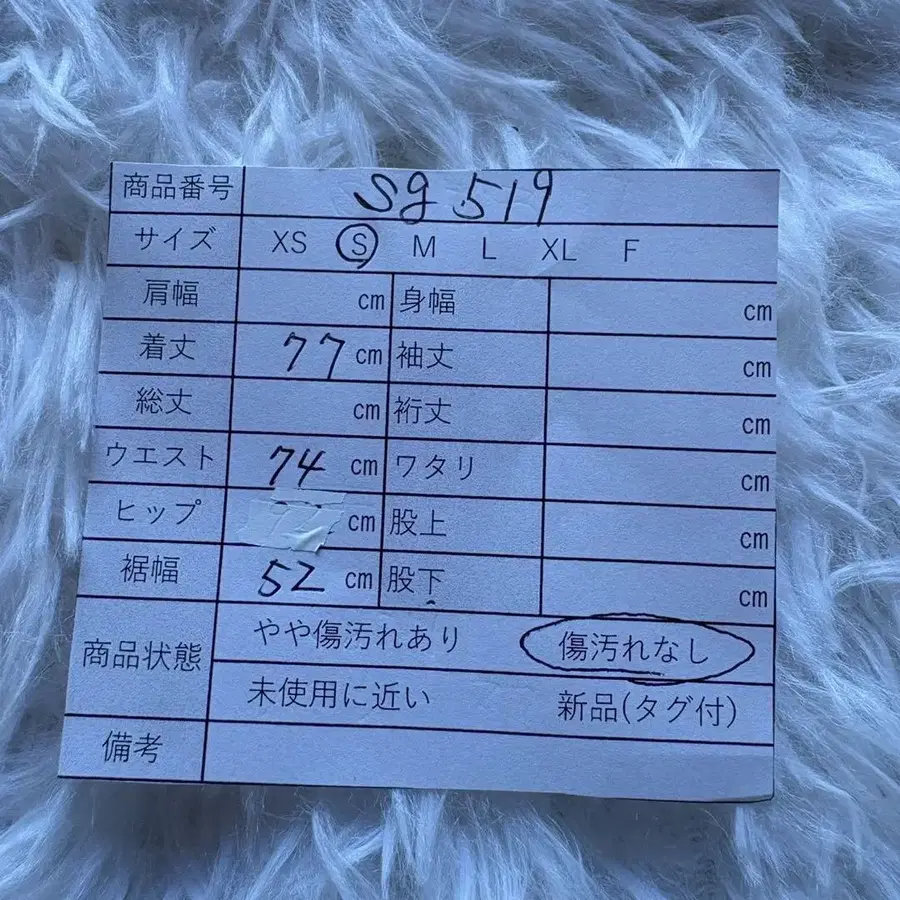 商品番号 sg 519
サイズ XS S M L XL F
肩幅 cm 身幅 cm
着丈 77 cm 袖丈 cm
総丈 cm 裄丈 cm
ウエスト 74 cm ワタリ cm
ヒップ cm 股上 cm
裾幅 52 cm 股下 cm
商品状態 やや傷汚れあり 傷汚れなし
未使用に近い 新品(タグ付)
備考